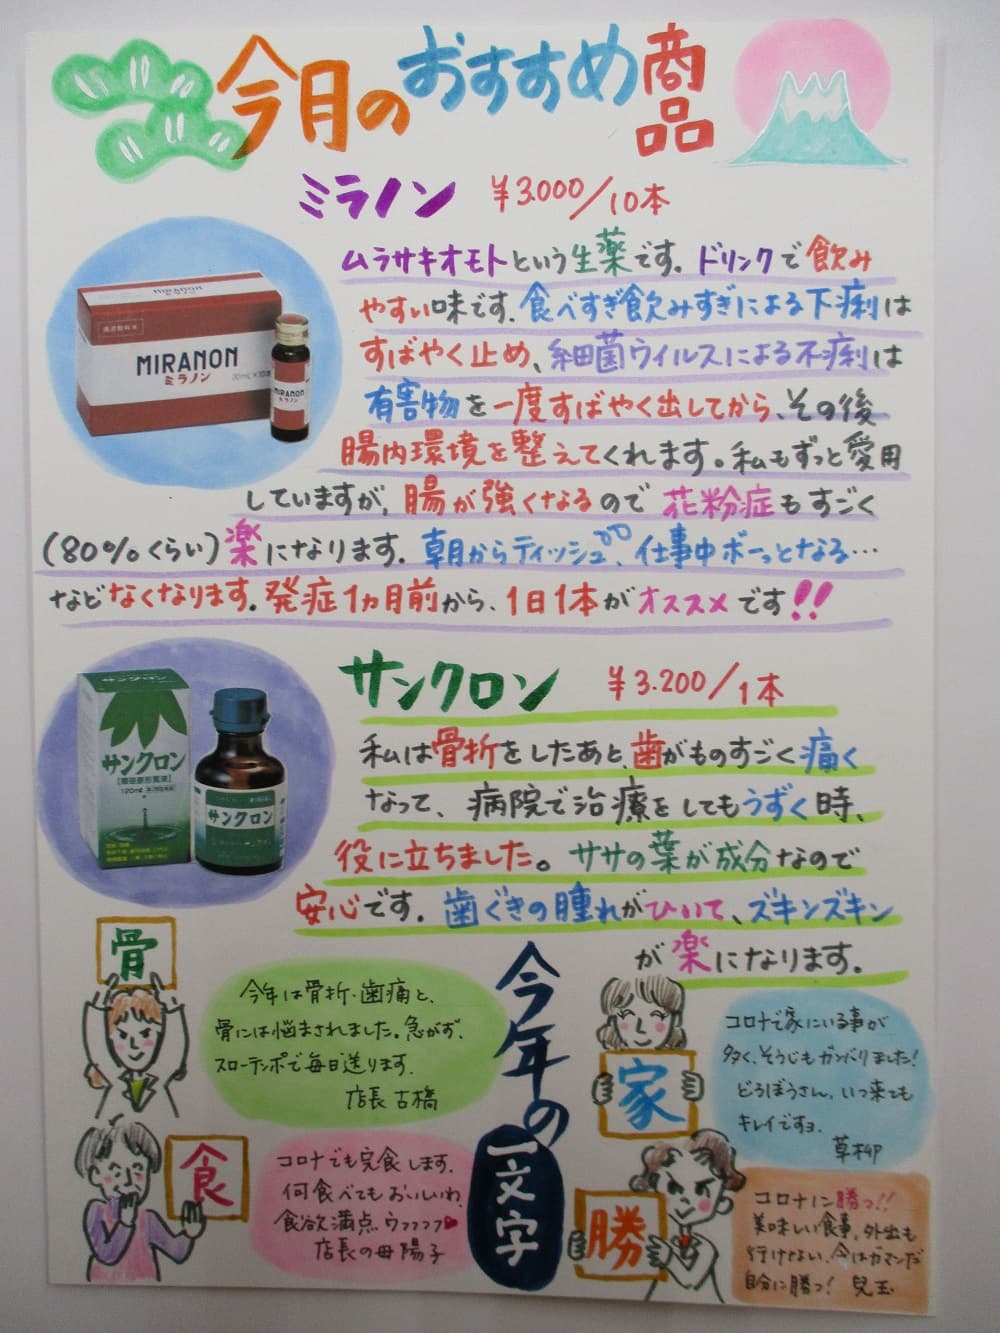 今月のおすすめ商品
ミラノン ¥3.000/10本
ムラサキオモトという生薬です。ドリンクで飲み
やすい味です。食べすぎ飲みすぎによる下痢は
すばやく止め、細菌ウイルスによる下痢は
有害物を一度すばやく出してから、その後
腸内環境を整えてくれます。私もずっと愛用
していますが、腸が強くなるので花粉症もすごく
(80%くらい)楽になります。朝からティッシュ、仕事中ボーッとなる…
などなくなります。発症1ヵ月前から、1日1本がオススメです!!
MIRANON
ミラノン
清涼飲料水
MIRANON
ミラノン
MIRANON
ミラノン
サンクロン ¥3.200/1本
私は骨折をしたあと、歯がものすごく痛く
なって、病院で治療をしてもうずく時、
役に立ちました。ササの葉が成分なので
安心です。歯ぐきの腫れがひいて、ズキンズキン
が楽になります。
サンクロン
サンクロン
120ml
サンクロン
今年の一文字
骨
今年は骨折・歯痛と、
骨には悩まされました。急がず、
スローテンポで毎日送ります。
店長 古橋
家
コロナで家にいる事が
多く、そうじもガンバリました!
どろぼうさん、いつ来ても
キレイですョ。
草柳
食
コロナでも完食します。
何食べてもおいしいわ
食欲満点ウフフフフ
店長の母 陽子
勝
コロナに勝つ!!
美味しい食事、外出も
行けてない、今はガマンだ
自分に勝つ! 兒玉